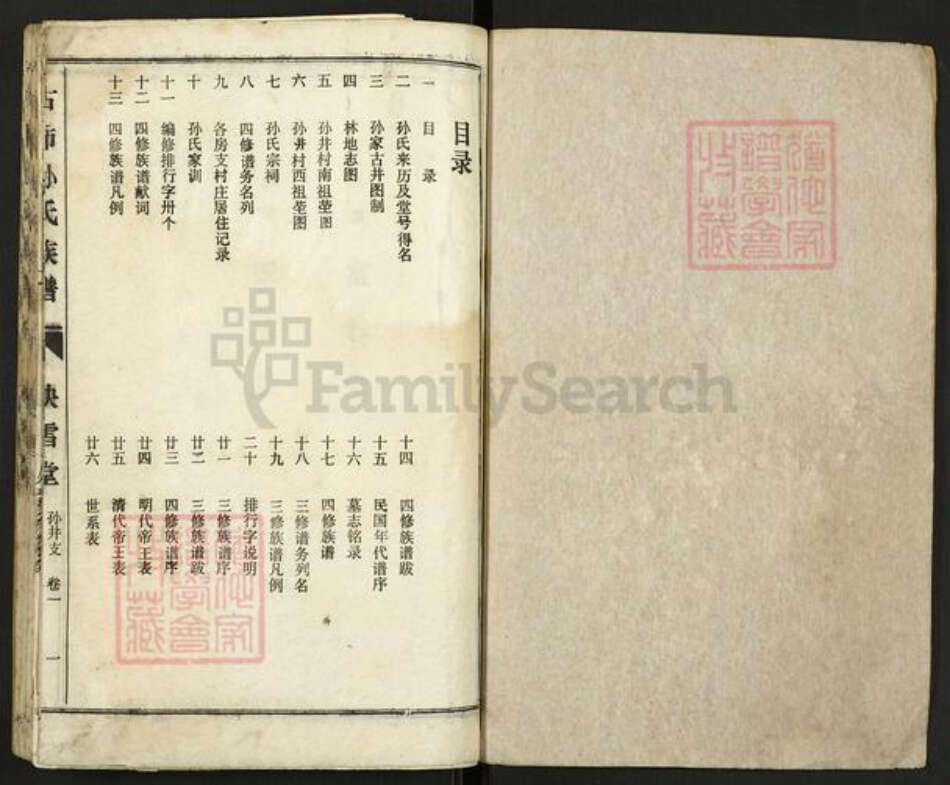 目录
一 目 录
二 孙氏来历及堂号得名
三 孙家古井图制
四 林地志图
五 孙井村南祖茔图
六 孙井村西祖茔图
七 孙氏宗祠
八 四修谱务名列
九 各房支村庄居住记录
十 孙氏家训
十一 编修排行字卅个
十二 四修族谱献词
十三 四修族谱凡例
十四 四修族谱跋
十五 民国年代谱序
十六 墓志铭录
十七 四修族谱
十八 三修谱务列名
十九 三修族谱凡例
二十 排行字说明
廿一 三修族谱序
廿二 三修族谱跋
廿三 四修族谱序
廿四 明代帝王表
廿五 清代帝王表
廿六 世系表
孙氏族谱
映雪堂
孙井支 卷一
一
FamilySearch